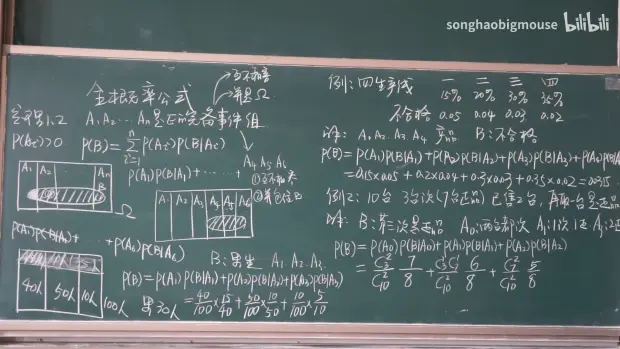 songhaobigmouse bilibili
全概率公式
互不相容
并是Ω
定理1.2 A₁ A₂ … Aₙ是E的完备事件组
P(Aᵢ)>0 P(B)=Σᵢ₌₁ⁿ P(Aᵢ)P(B|Aᵢ)
P(A₁)P(B|A₁)+ …… +
A₄ A₅ A₆
①互不相容
A₁ A₂ Aₙ
B
Ω
A₄ A₅ A₆
P(A₁)P(B|A₁)+ … +P(A₆)P(B|A₆)
40人 50人 10人 100人
B:男生 A₁ A₂ A₃
P(B)=P(A₁)P(B|A₁)+P(A₂)P(B|A₂)+P(A₃)P(B|A₃)
男30人 =40/100×15/40+50/100×10/50+10/100×5/10
例:四生产线 一 二 三 四
15% 20% 30% 35%
不合格 0.05 0.04 0.03 0.02
解: A₁ A₂ A₃ A₄ B:不合格
P(B)=P(A₁)P(B|A₁)+P(A₂)P(B|A₂)+P(A₃)P(B|A₃)+P(A₄)P(B|
=0.15×0.05+0.2×0.04+0.3×0.03+0.35×0.02=0.0315
例2:10台 3台次(7台正品) 已售2台, 再取一台是正品
解: B:第三次是正品 A₀:两台都次 A₁:1次1正 A₂:2正
P(B)=P(A₀)P(B|A₀)+P(A₁)P(B|A₁)+P(A₂)P(B|A₂)
=C₃²/C₁₀² 7/8+C₃¹C₇¹/C₁₀² 6/8+C₇²/C₁₀² 5/8